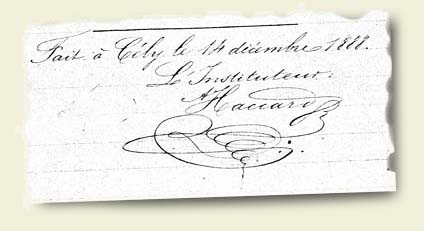 Fait à Cély le 14 décembre 1888.
L'Instituteur.
AHaccard